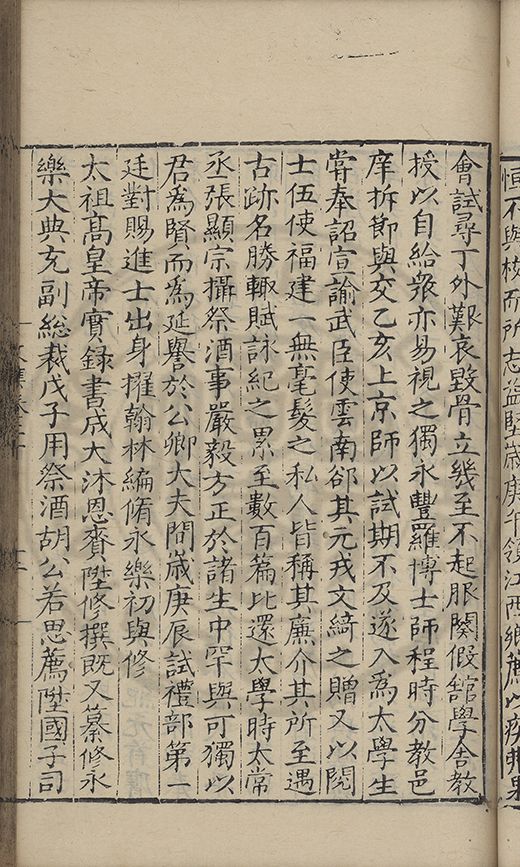 恒不與校而所志益堅歲庚午領江西鄉薦以疾弗果
會試尋丁外艱哀毀骨立幾至不起服闋假舘學舍教
授以自給衆亦易視之獨永豐羅博士師程時分教邑
庠折節與交乙亥上京師以試期不及遂入為太學生
嘗奉詔宣諭武臣使雲南郤其元戎文綺之贈又以閱
士伍使福建一無毫髮之私人皆稱其廉介其所至遇
古跡名勝輙賦詠紀之累至數百篇比還太學時太常
丞張顯宗攝祭酒事嚴毅方正於諸生中罕與可獨以
君為賢而為延譽於公卿大夫間歲庚辰試禮部第一
廷對賜進士出身擢翰林編脩永樂初與修
太祖高皇帝實録書成大沐恩賚陞修撰既又纂修永
樂大典充副総裁戊子用祭酒胡公若思薦陞國子司